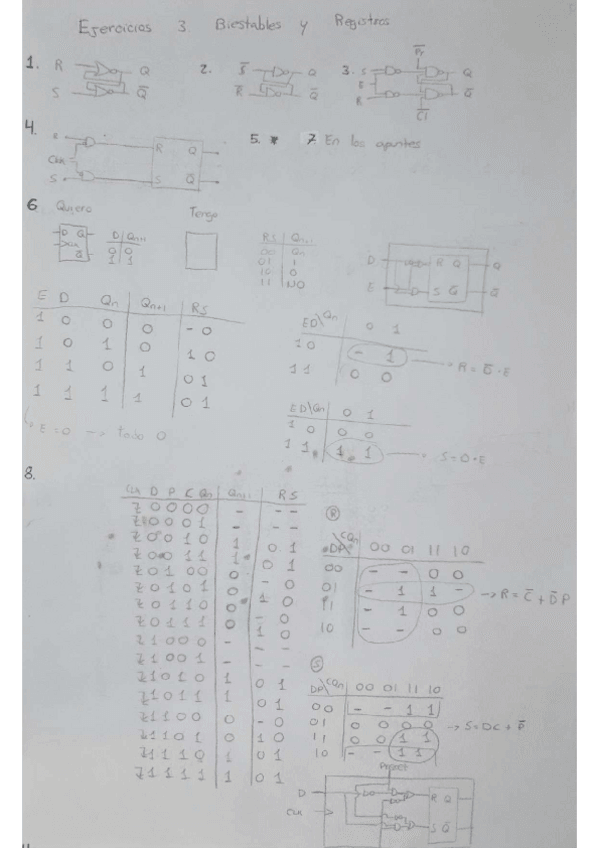 Ejercicios 3 Biestables y Registros
1. R Q S Q̅
2. S̅ Q R̅ Q̅
3. S E R P̅r̅ Q Q̅ C̅l̅
4. R CLK S R Q S Q̅
5. 7 En los apuntes
6 Quiero Tengo
D Q CLK Q̅
D Qn+1
0 0
1 1
RS Qn+1
00 Qn
01 1
10 0
11 NO
D E R Q S Q̅ Q Q̅
E D Qn Qn+1 RS
1 0 0 0 - 0
1 0 1 0 1 0
1 1 0 1 0 1
1 1 1 1 0 1
E=0 → todo 0
ED\Qn 0 1
10 - 1 → R = D̅·E
11 0 0
ED\Qn 0 1
10 0 0
11 1 1 S=D·E
8.
CLK D P C Qn Qn+1 R S
0 0 0 0 - - -
0 0 0 1 - - -
0 0 1 0 1 0 1
0 0 1 1 1 0 1
0 1 0 0 0 - 0
0 1 0 1 0 1 0
0 1 1 0 0 - 0
0 1 1 1 0 1 0
1 0 0 0 - - -
1 0 0 1 - - -
1 0 1 0 1 0 1
1 0 1 1 1 0 1
1 1 0 0 0 - 0
1 1 0 1 0 1 0
1 1 1 0 1 0 1
1 1 1 1 1 0 1
R
DP\CQn 00 01 11 10
00 - - 0 0
01 - 1 1 - → R = C̅ + D̅P
11 - 1 0 0
10 - - 0 0
S
DP\CQn 00 01 11 10
00 - - 1 1
01 0 0 0 0 → S=DC + P̅
11 0 0 1 1
10 - - 1 1
Preset
D CLK R Q S Q̅